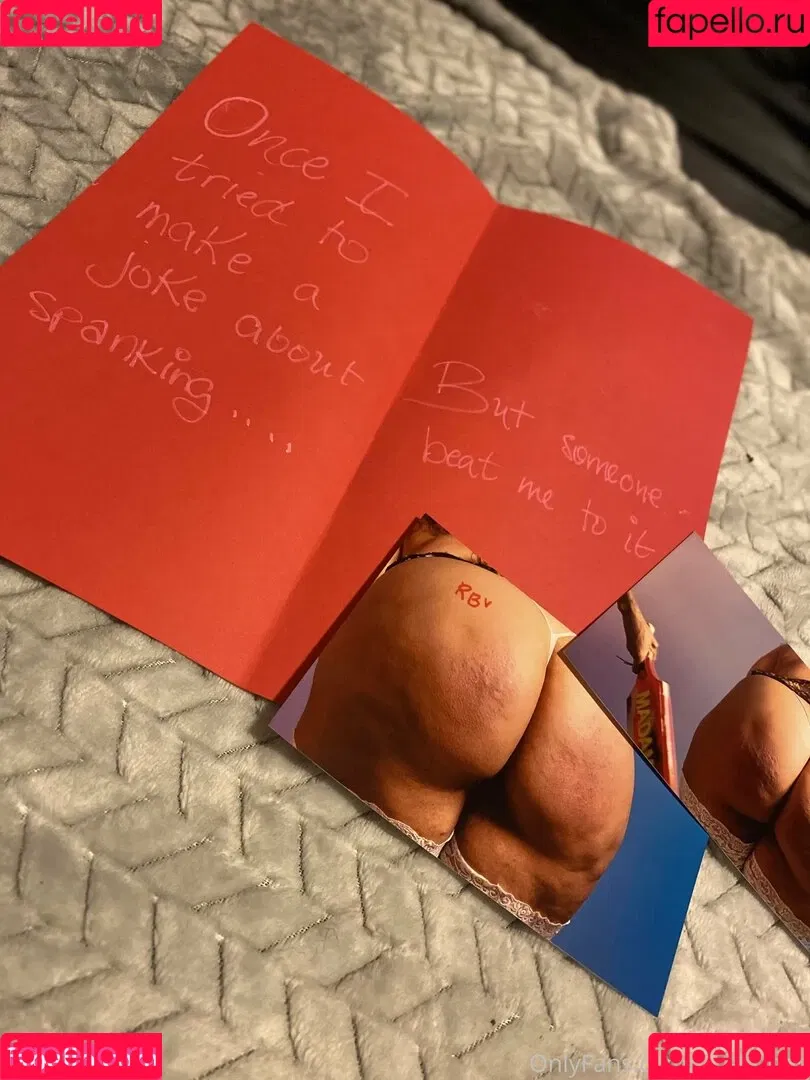 fapello.ru
fapello.ru
Once I
tried to
make a
joke about
spanking....
But someone..
beat me to it
RB
MADAM
fapello.ru
OnlyFans
fapello.ru